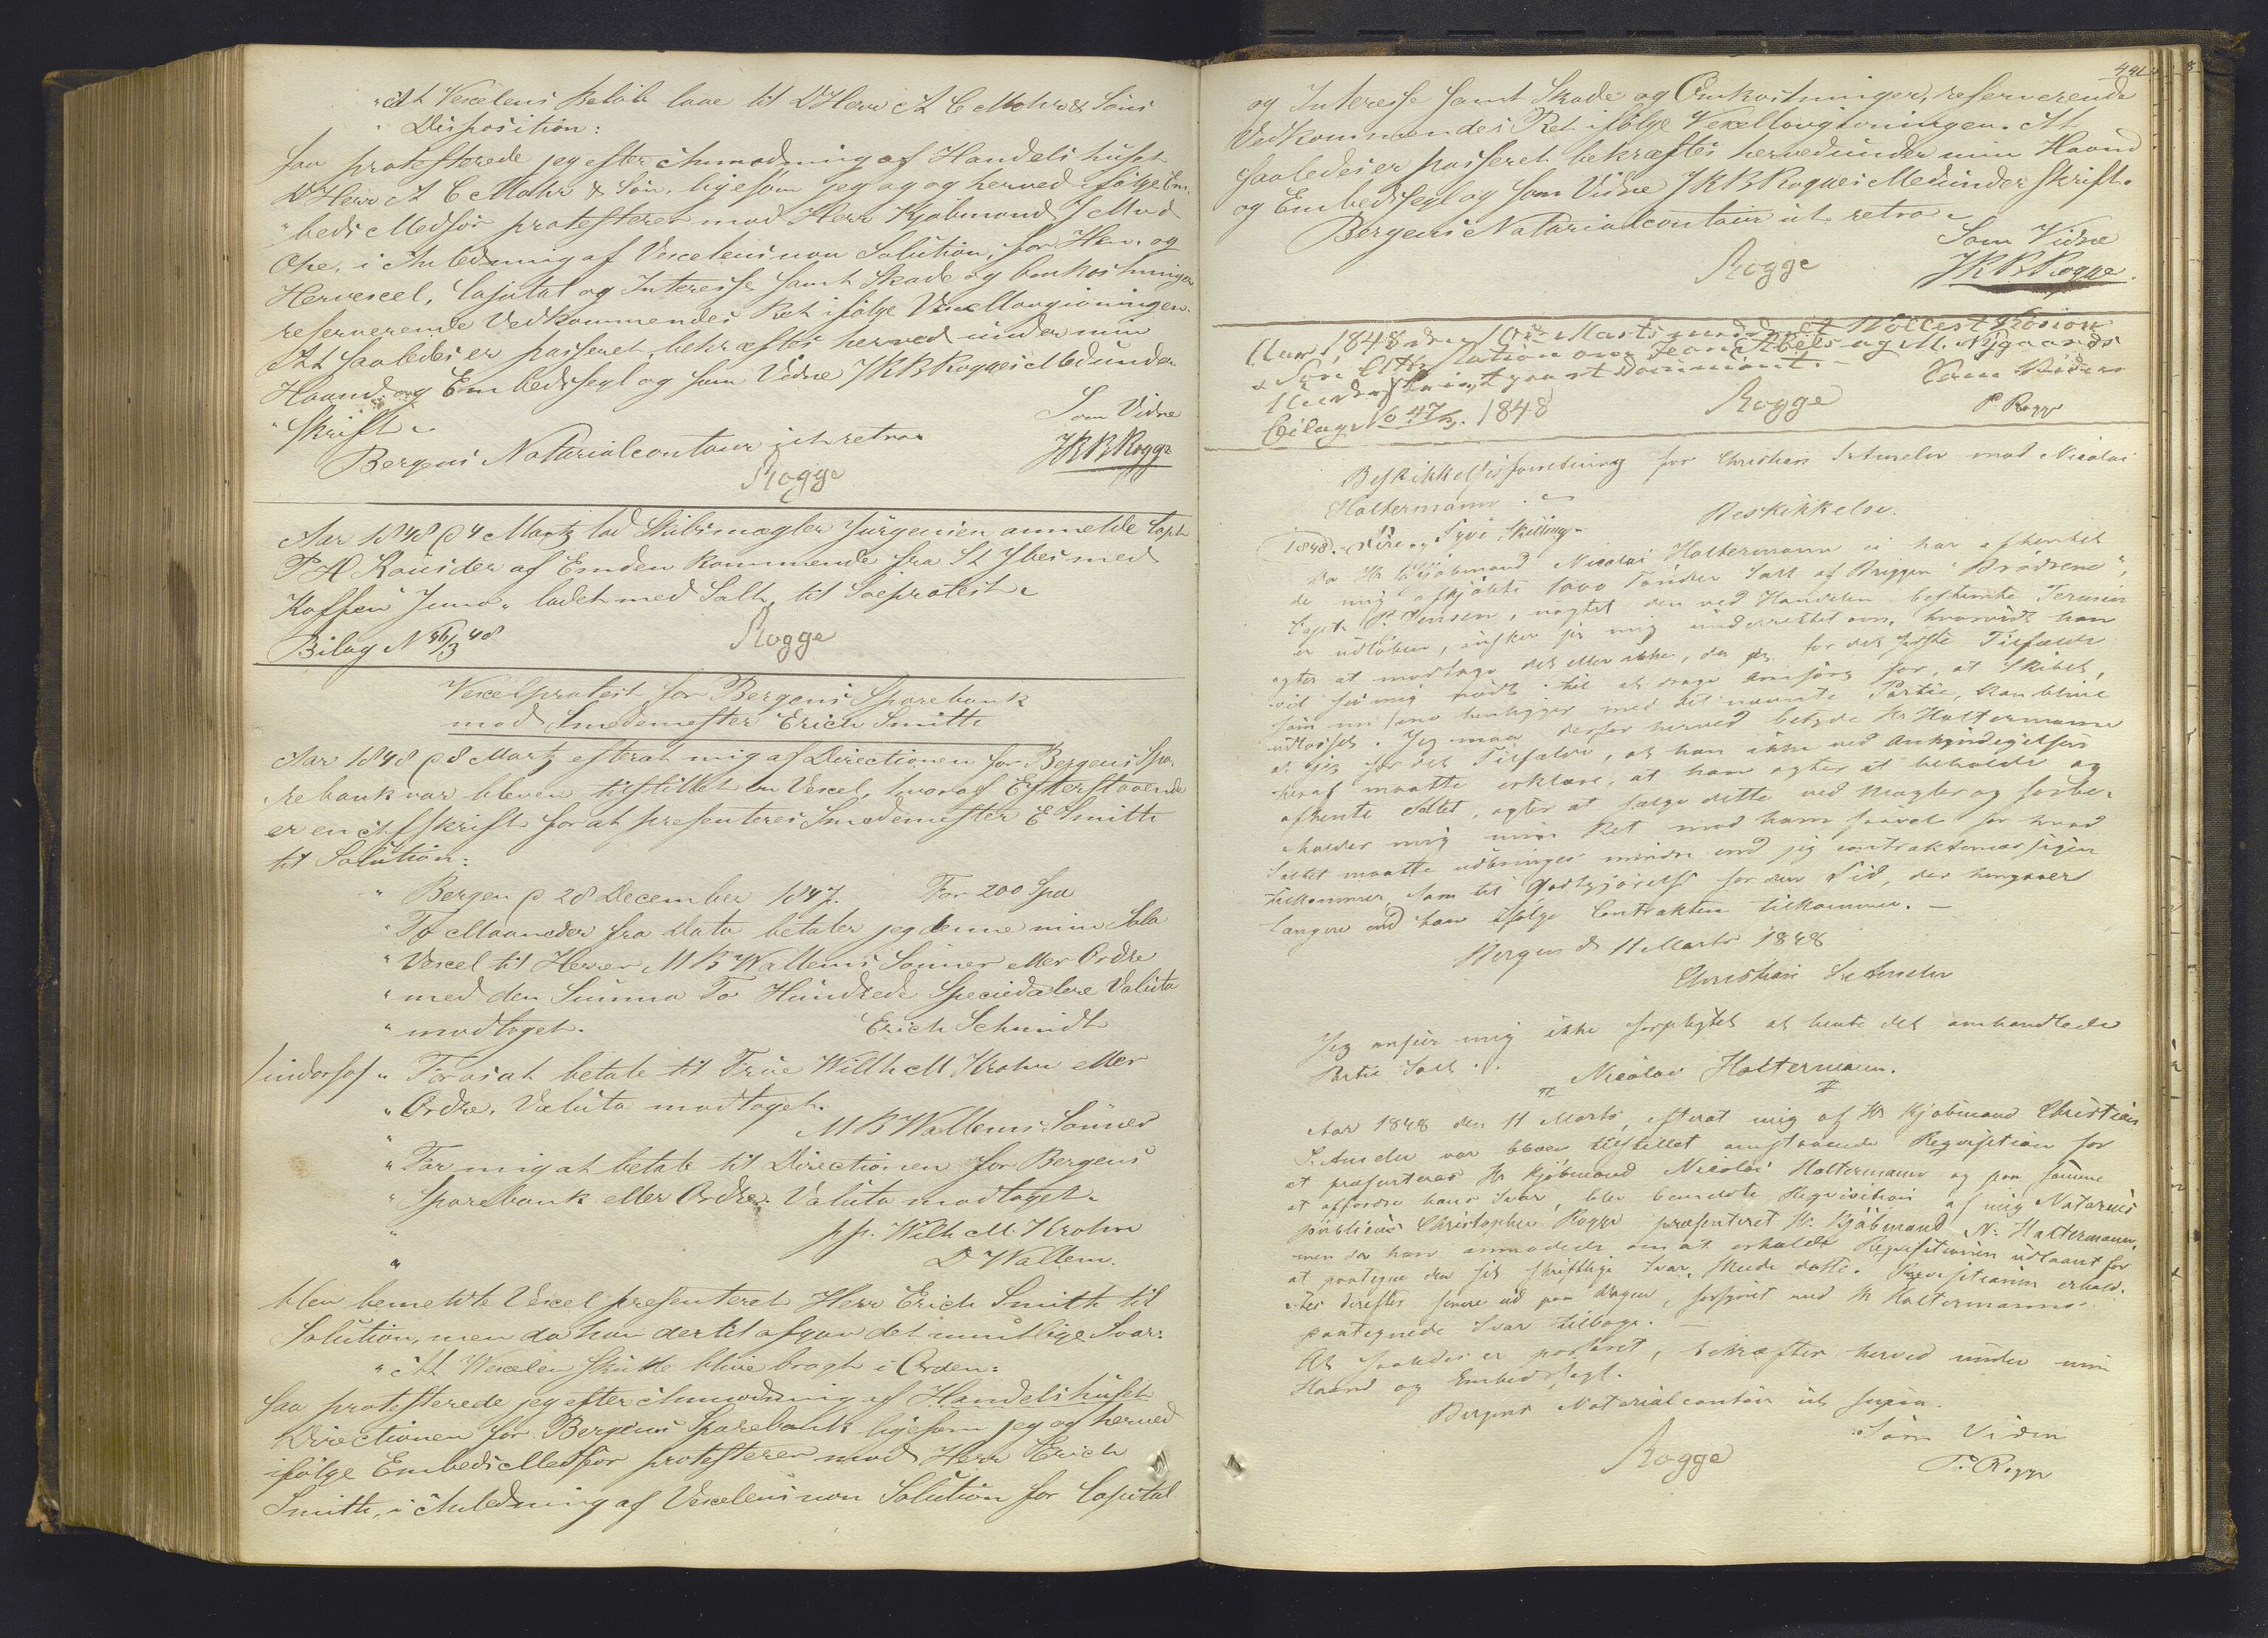 "At Vexelens Beløb laae til DHerr A C Mohr & Søns
" Disposition:
saa protesterede jeg efter Anmodning af Handelshuset
DHerr A C Mohr & Søn, ligesom jeg og og herved ifølge Em-
"beds Medfør protesterer mod Herr Kjøbmand J
i Anledning af Vexelens non Solution, for og
Hervexel, Capital og Interesse samt Skade og Omkostninger
reserverende Vedkommendes Ret ifølge Vexellovgivningen.
At saaledes er passeret, bekræftes herved under min
Haand og Embedssegl og som Vidne JKBRogges Medunder-
"skrift.
Bergens Notarialcontoir ut retro.
Som Vidne
Rogge
JKBRogge
Aar 1848 d 4 Martz lod Skibsmægler Jürgensen anmelde Capt
af Emden kommende fra St Ybes med
Koffen "Juno" ladet med Salt, til Søeprotest.
Bilag N 46/3 48
Rogge
Vexelprotest for Bergens Sparebank
mod Smedemester Erich Smith
Aar 1848 d 8 Martz efterat mig af Directionen for Bergens Spa-
rebank var bleven tilstillet en Vexel, hvoraf Efterstaaende
er en Afskrift for at presenteres Smedemester E Smith
til Solution:
" Bergen d. 28 December 1847. For 200 Spd
" To Maaneder fra Dato betaler jeg denne min Sola
" Vexel til Herrer M B Wallems Sønner eller Ordre
" med den Summa To Hundrede Speciedalere Valuta
" modtaget. Erich Schmidt
" For os at betale til Frue Wilh M Krohn eller
" Ordre. Valuta modtaget.
" M B Wallems Sønner
" For mig at betale til Directionen for Bergens
" Sparebank eller Ordre. Valuta modtaget.
" pp. Wilh M. Krohn
" D Wallem.
blev bemeldte Vexel presenteret Herr Erich Smith til
Solution, men da han dertil afgav det mundtlige Svar:
" At Vexelen skulde blive bragt i Orden:
saa protesterede jeg efter Anmodning af Handelshuset
Directionen for Bergens Sparebank ligesom jeg og herved
ifølge Embeds Medfør protesterer mod Herr Erich
Smith, i Anledning af Vexelens non Solution for Capital
441
og Interesse samt Skade og Omkostninger, reserverende
Vedkommendes Ret ifølge Vexellovgivningen. At
saaledes er passeret bekræftes herved under min Haand
og Embedssegl og som Vidne JKBRogges Medunderskrift.
Bergens Notarialcontoir ut retro.
Som Vidne
Rogge
JKBRogge.
Aar 1848 den 10de Marts
& Søn om og M. Nygaards
Bilag No 47/3. 1848
Rogge
Som Vidne
P Rogge
Beskikkelsesforretning for Christian mod Nicolai
Holtermann.
1848. Fire og Tyve Skilling.
Beskikkelse.
Da Hr Kjøbmand Nicolai Holtermann ei har afhentet
de mig afkjøbte 1000 Tønder Salt af Briggen "Brødrene",
Capt. P. Jensen, uagtet den ved Handelen bestemte Termin
er udløben, ønsker jeg mig underrettet om, hvorvidt han
agter at modtage det eller ikke, da jeg for det sidste Tilfælde
vil see mig nødt til at drage Omsorg for, at Skibet,
som nu henligger med det nævnte Partie, kan blive
udlosset. Jeg maa derfor herved betyde Hr Holtermann
at jeg for det Tilfælde, at han ikke ved Ankyndigelsen
heraf maatte erklære, at han agter at beholde og
afhente Saltet, agter at sælge dette ved Mægler og forbe-
holder mig min Ret mod ham saavel for hvad
Saltet maatte udbringes mindre end jeg contraktmæssigen
tilkommer, som til Godtgjørelse for den Tid, der hengaaer
længere end ham ifølge Contrakten tilkommer. —
Bergen d 11 Marts 1848
Christian
Jeg anseer mig ikke forpligtet at hente det omhandlede
Partie Salt.
Nicolai Holtermann.
Aar 1848 den 11 Marts, efterat mig af Hr Kjøbmand Christian
var bleven tilstillet omstaaende Reqvisition for
at præsenteres Hr Kjøbmand Nicolai Holtermann og paa samme
at affordre hans Svar, blev bemeldte Reqvisition af mig Notarius
publicus Christopher Rogge præsenteret Hr. Kjøbmand N. Holtermann,
men da han anmodede om at erholde Reqvisitionen udlaant for
at paategne den sit skriftlige Svar, skede dette. Reqvisitionen erhold-
tes derefter senere ud paa Dagen, forsynet med Hr Holtermanns
paategnede Svar tilbage. —
At saaledes er passeret, bekræftes herved under min
Haand og Embedssegl.
Bergens Notarialcontoir ut supra.
Som Vidne
Rogge
P. Rogge